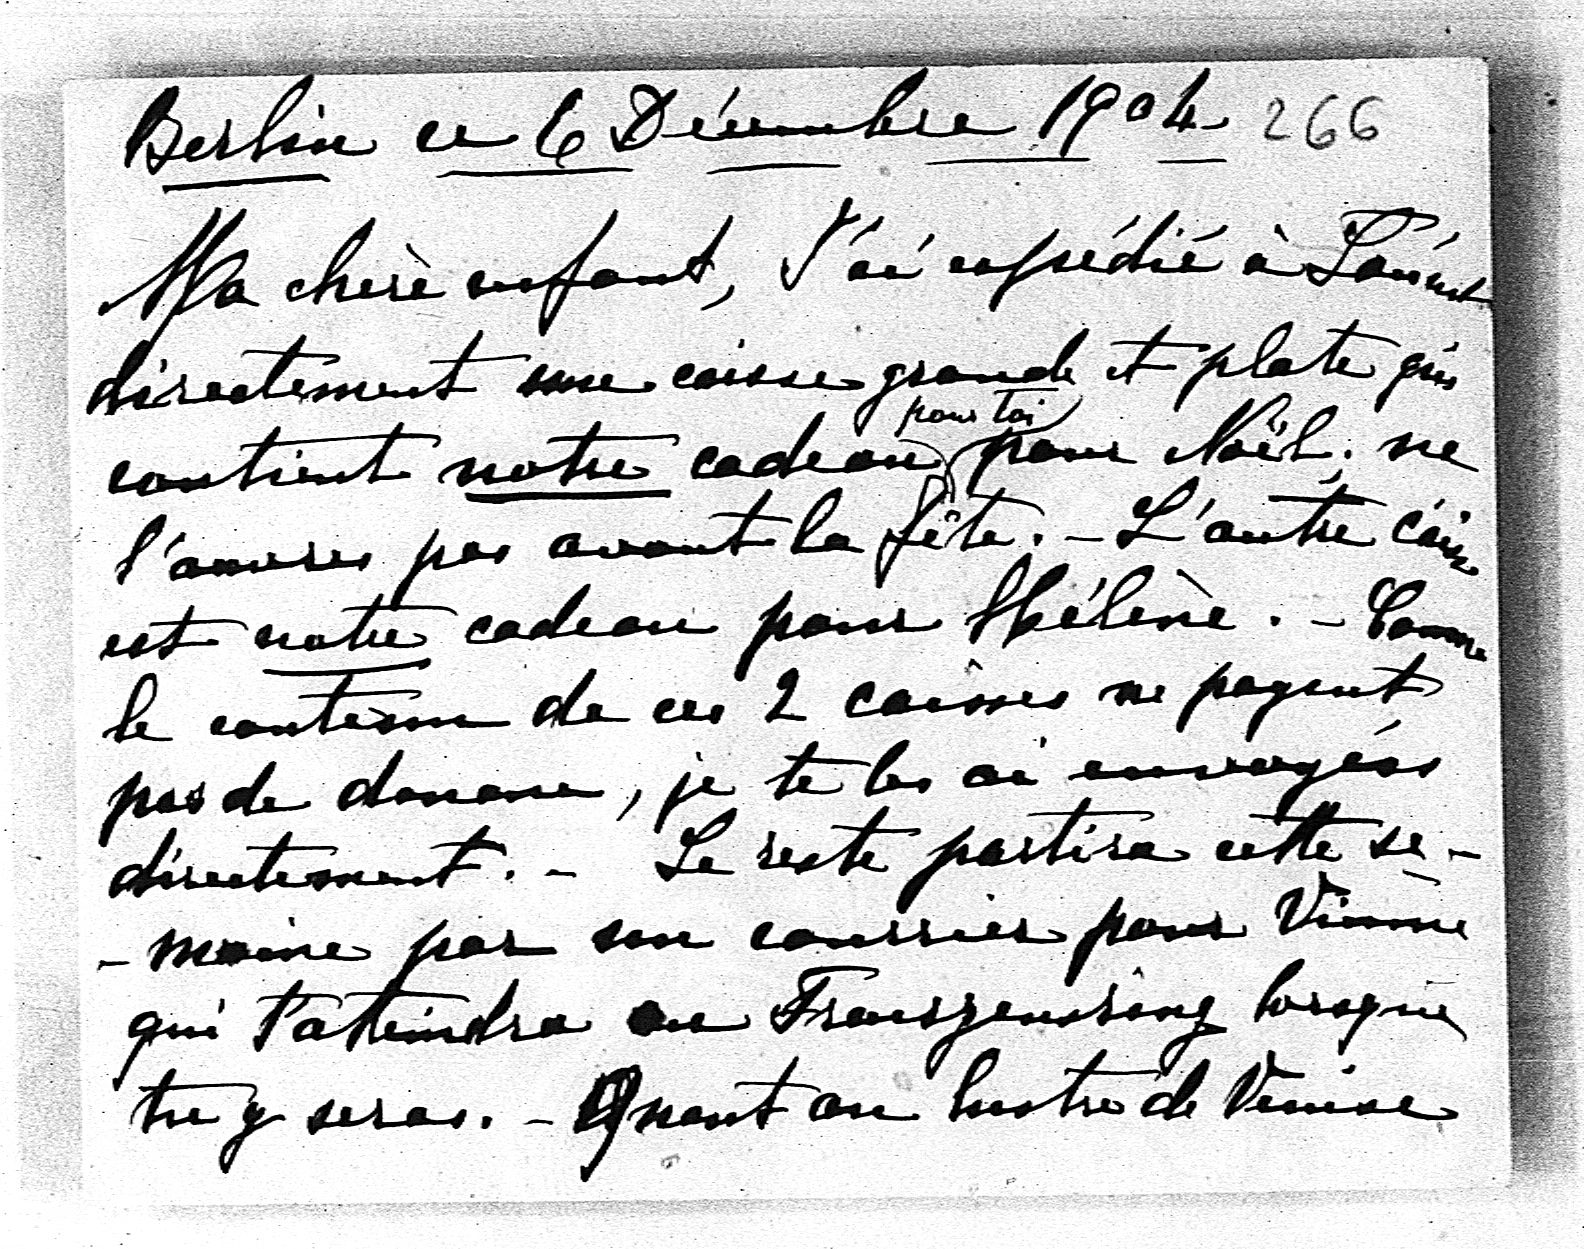 Berlin ce 6 Décembre 1904 266
Ma chère enfant, J'ai expédié à
directement une caisse grande et plate qui
pour toi
contient notre cadeau pour Noël, ne
l'ouvres pas avant la fête. - L'autre caisse
est notre cadeau pour Hélène. - Comme
le contenu de ces 2 caisses ne payent
pas de douane, je te les ai envoyées
directement. - Le reste partira cette se-
-maine par un courrier pour Vienne
qui t'atteindra au Franzensring lorsque
tu y seras. - Quant au lustre de Venise